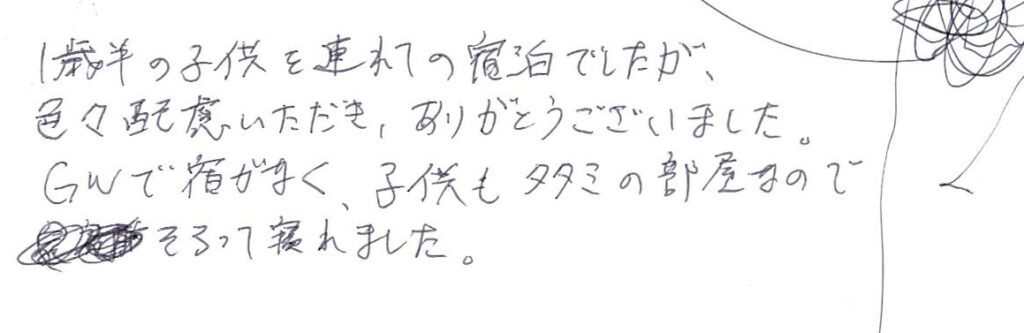 1歳半の子供を連れての宿泊でしたが、
色々配慮いただき、ありがとうございました。
GWで宿がなく、子供もタタミの部屋なので
そろって寝れました。